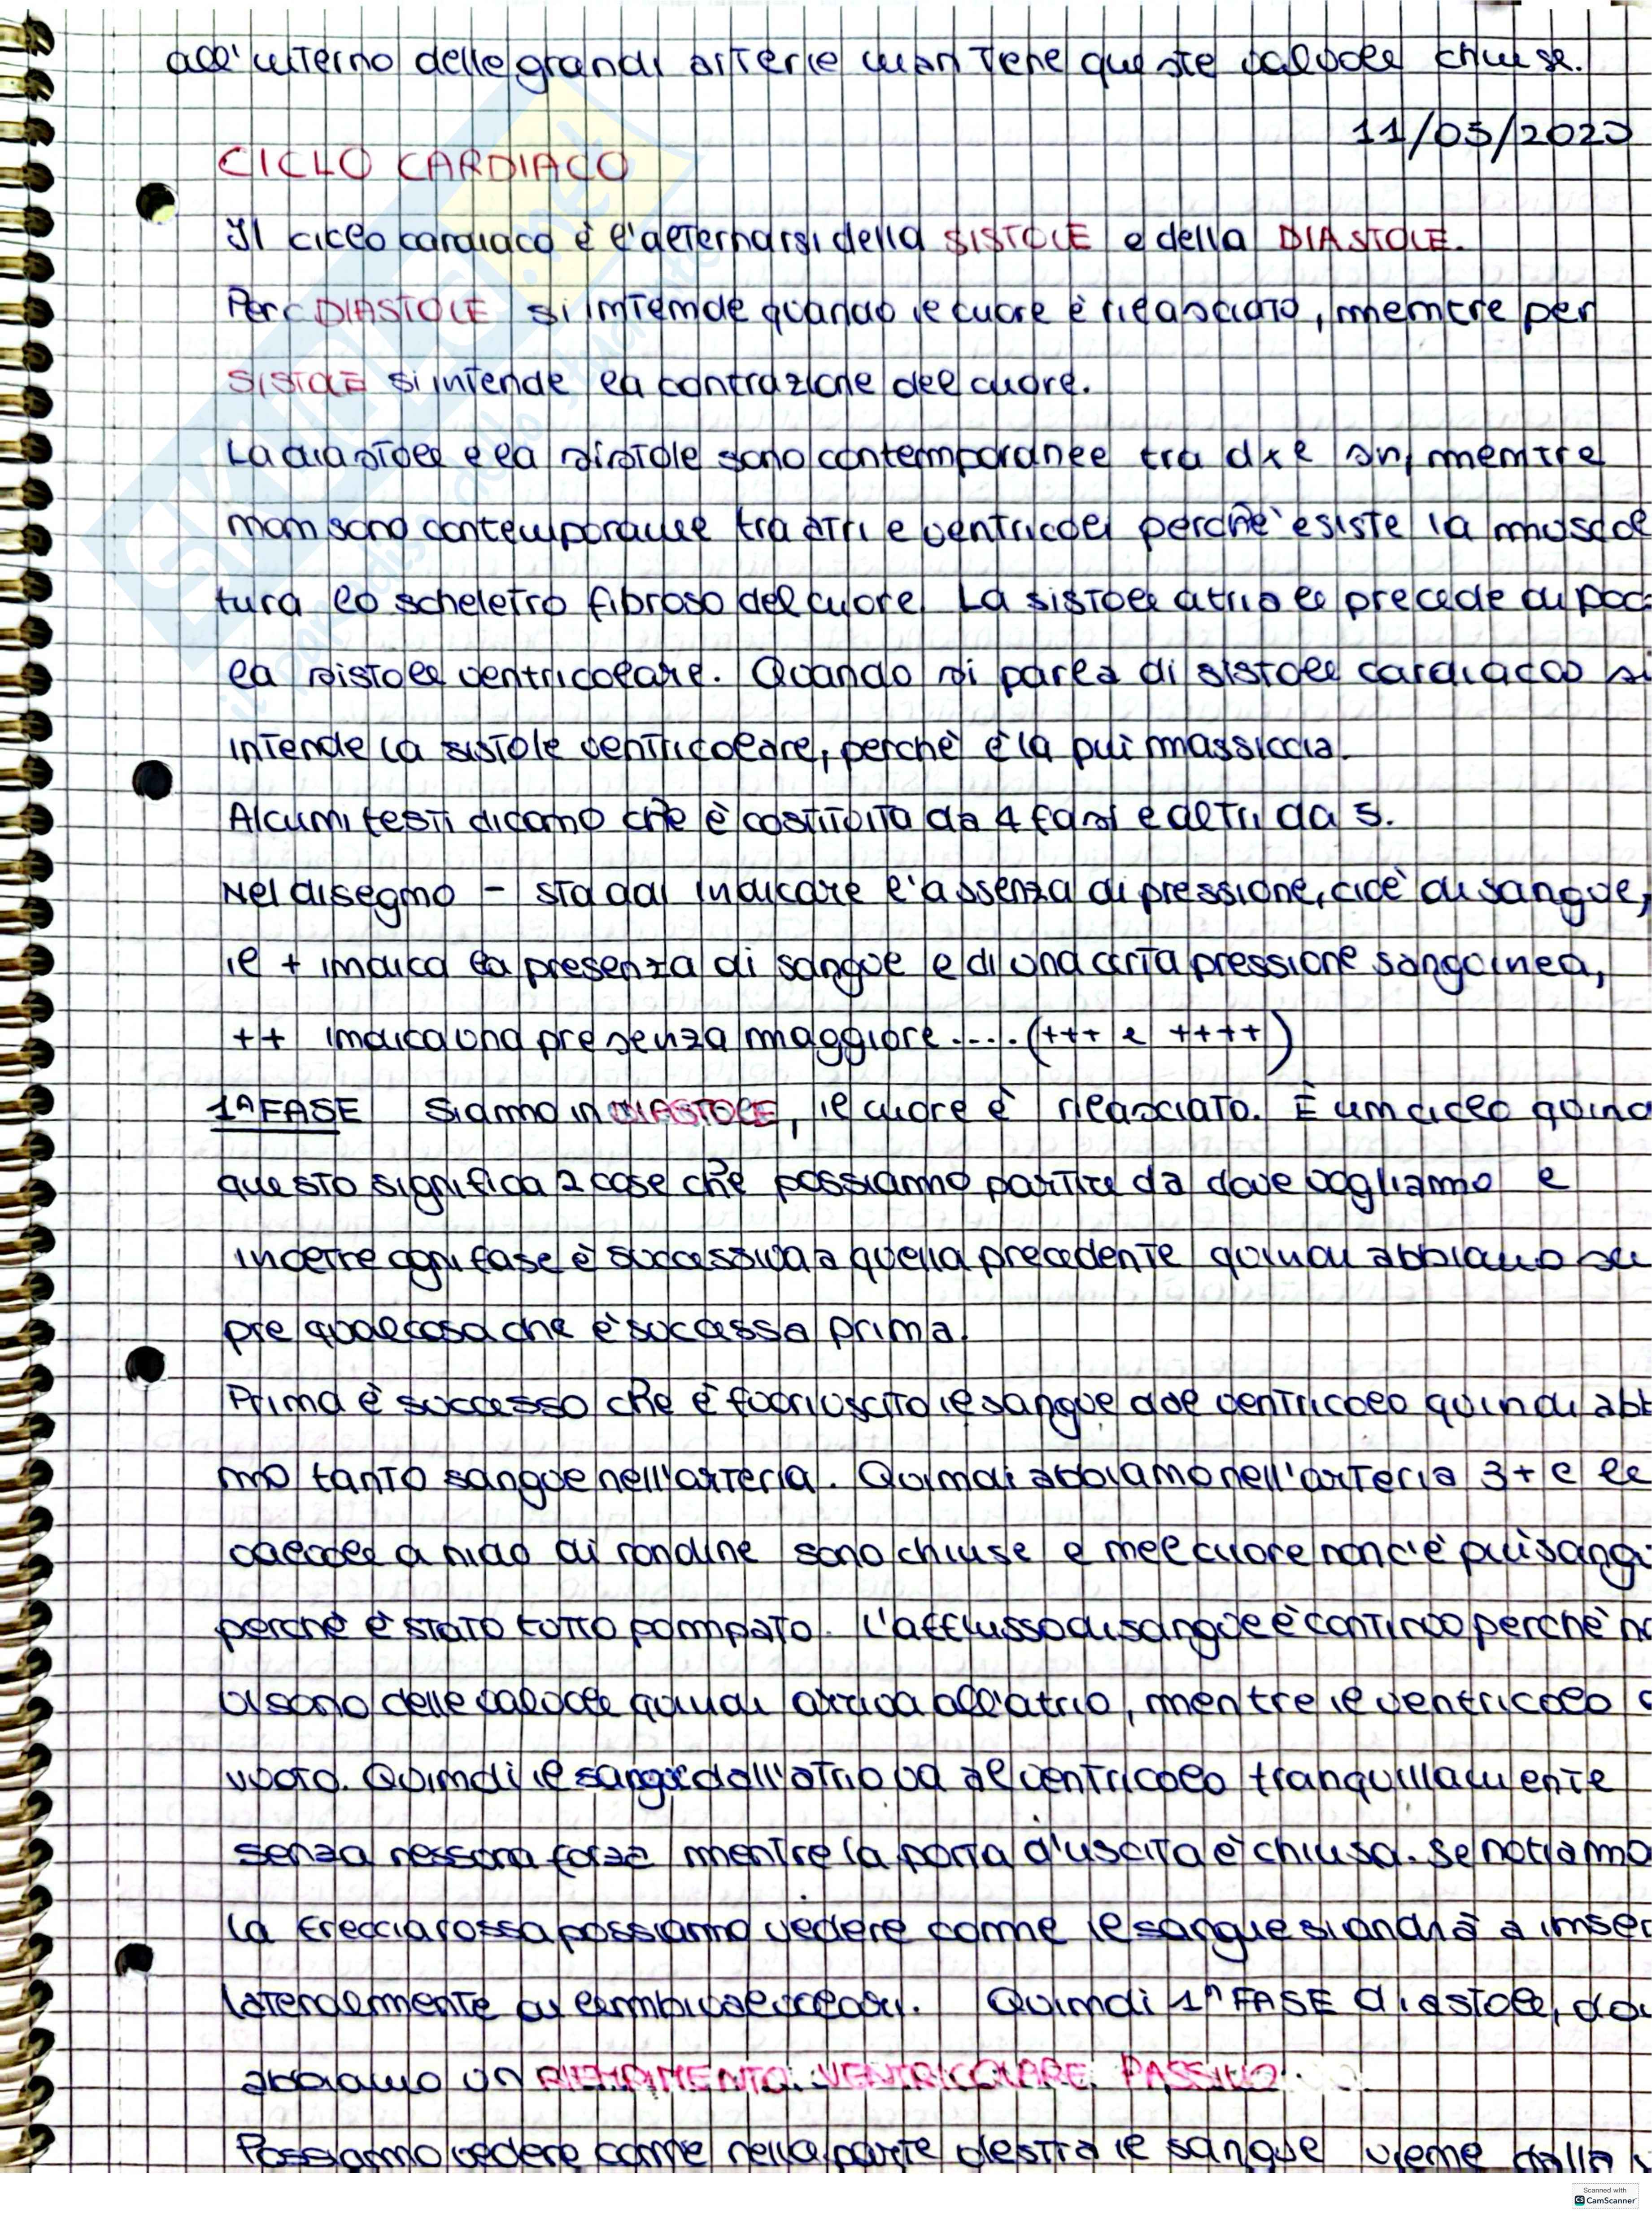 all'interno delle grandi arterie mantiene queste valvole chiuse.
11/03/2020
CICLO CARDIACO
Il ciclo cardiaco è l'alternarsi della SISTOLE e della DIASTOLE.
Per DIASTOLE si intende quando il cuore è rilasciato, mentre per
SISTOLE si intende la contrazione del cuore.
La diastole e la sistole sono contemporanee tra dx e sn, mentre
non sono contemporanee tra atri e ventricoli perchè esiste la muscol
tura lo scheletro fibroso del cuore. La sistole atriale precede di poc
la sistole ventricolare. Quando si parla di sistole cardiaca si
intende la sistole ventricolare, perchè è la più massiccia.
Alcuni testi dicono che è costituita da 4 fasi e altri da 5.
Nel disegno - sta ad indicare l'assenza di pressione, cioè di sangue,
il + indica la presenza di sangue e di una certa pressione sanguinea,
++ indica una presenza maggiore..... (+++ e ++++)
1ª FASE Siamo in DIASTOLE, il cuore è rilasciato. È un ciclo quind
questo significa 2 cose che possiamo partire da dove vogliamo e
inoltre ogni fase è successiva a quella precedente quindi abbiamo se
pre qualcosa che è successa prima.
Prima è successo che è fuoriuscito il sangue dal ventricolo quindi abb
mo tanto sangue nell'arteria. Quindi abbiamo nell'arteria 3+ e le
valvole a nido di rondine sono chiuse e nel cuore non c'è più sangu
perchè è stato tutto pompato. L'afflusso di sangue è continuo perchè no
vi sono delle valvole quindi arriva all'atrio, mentre il ventricolo è
vuoto. Quindi il sangue dall'atrio va al ventricolo tranquillamente
senza nessuna forza mentre la porta d'uscita è chiusa. Se notiamo
la freccia rossa possiamo vedere come il sangue si andrà a inser
lateralmente ai lembi valvolari. Quindi 1ª FASE diastole, dov
abbiamo un RIEMPIMENTO VENTRICOLARE PASSIVO.
Possiamo vedere come nella parte destra il sangue viene dalla v
SKUOLA.net
il paradiso dello studente
Scanned with
CS CamScanner